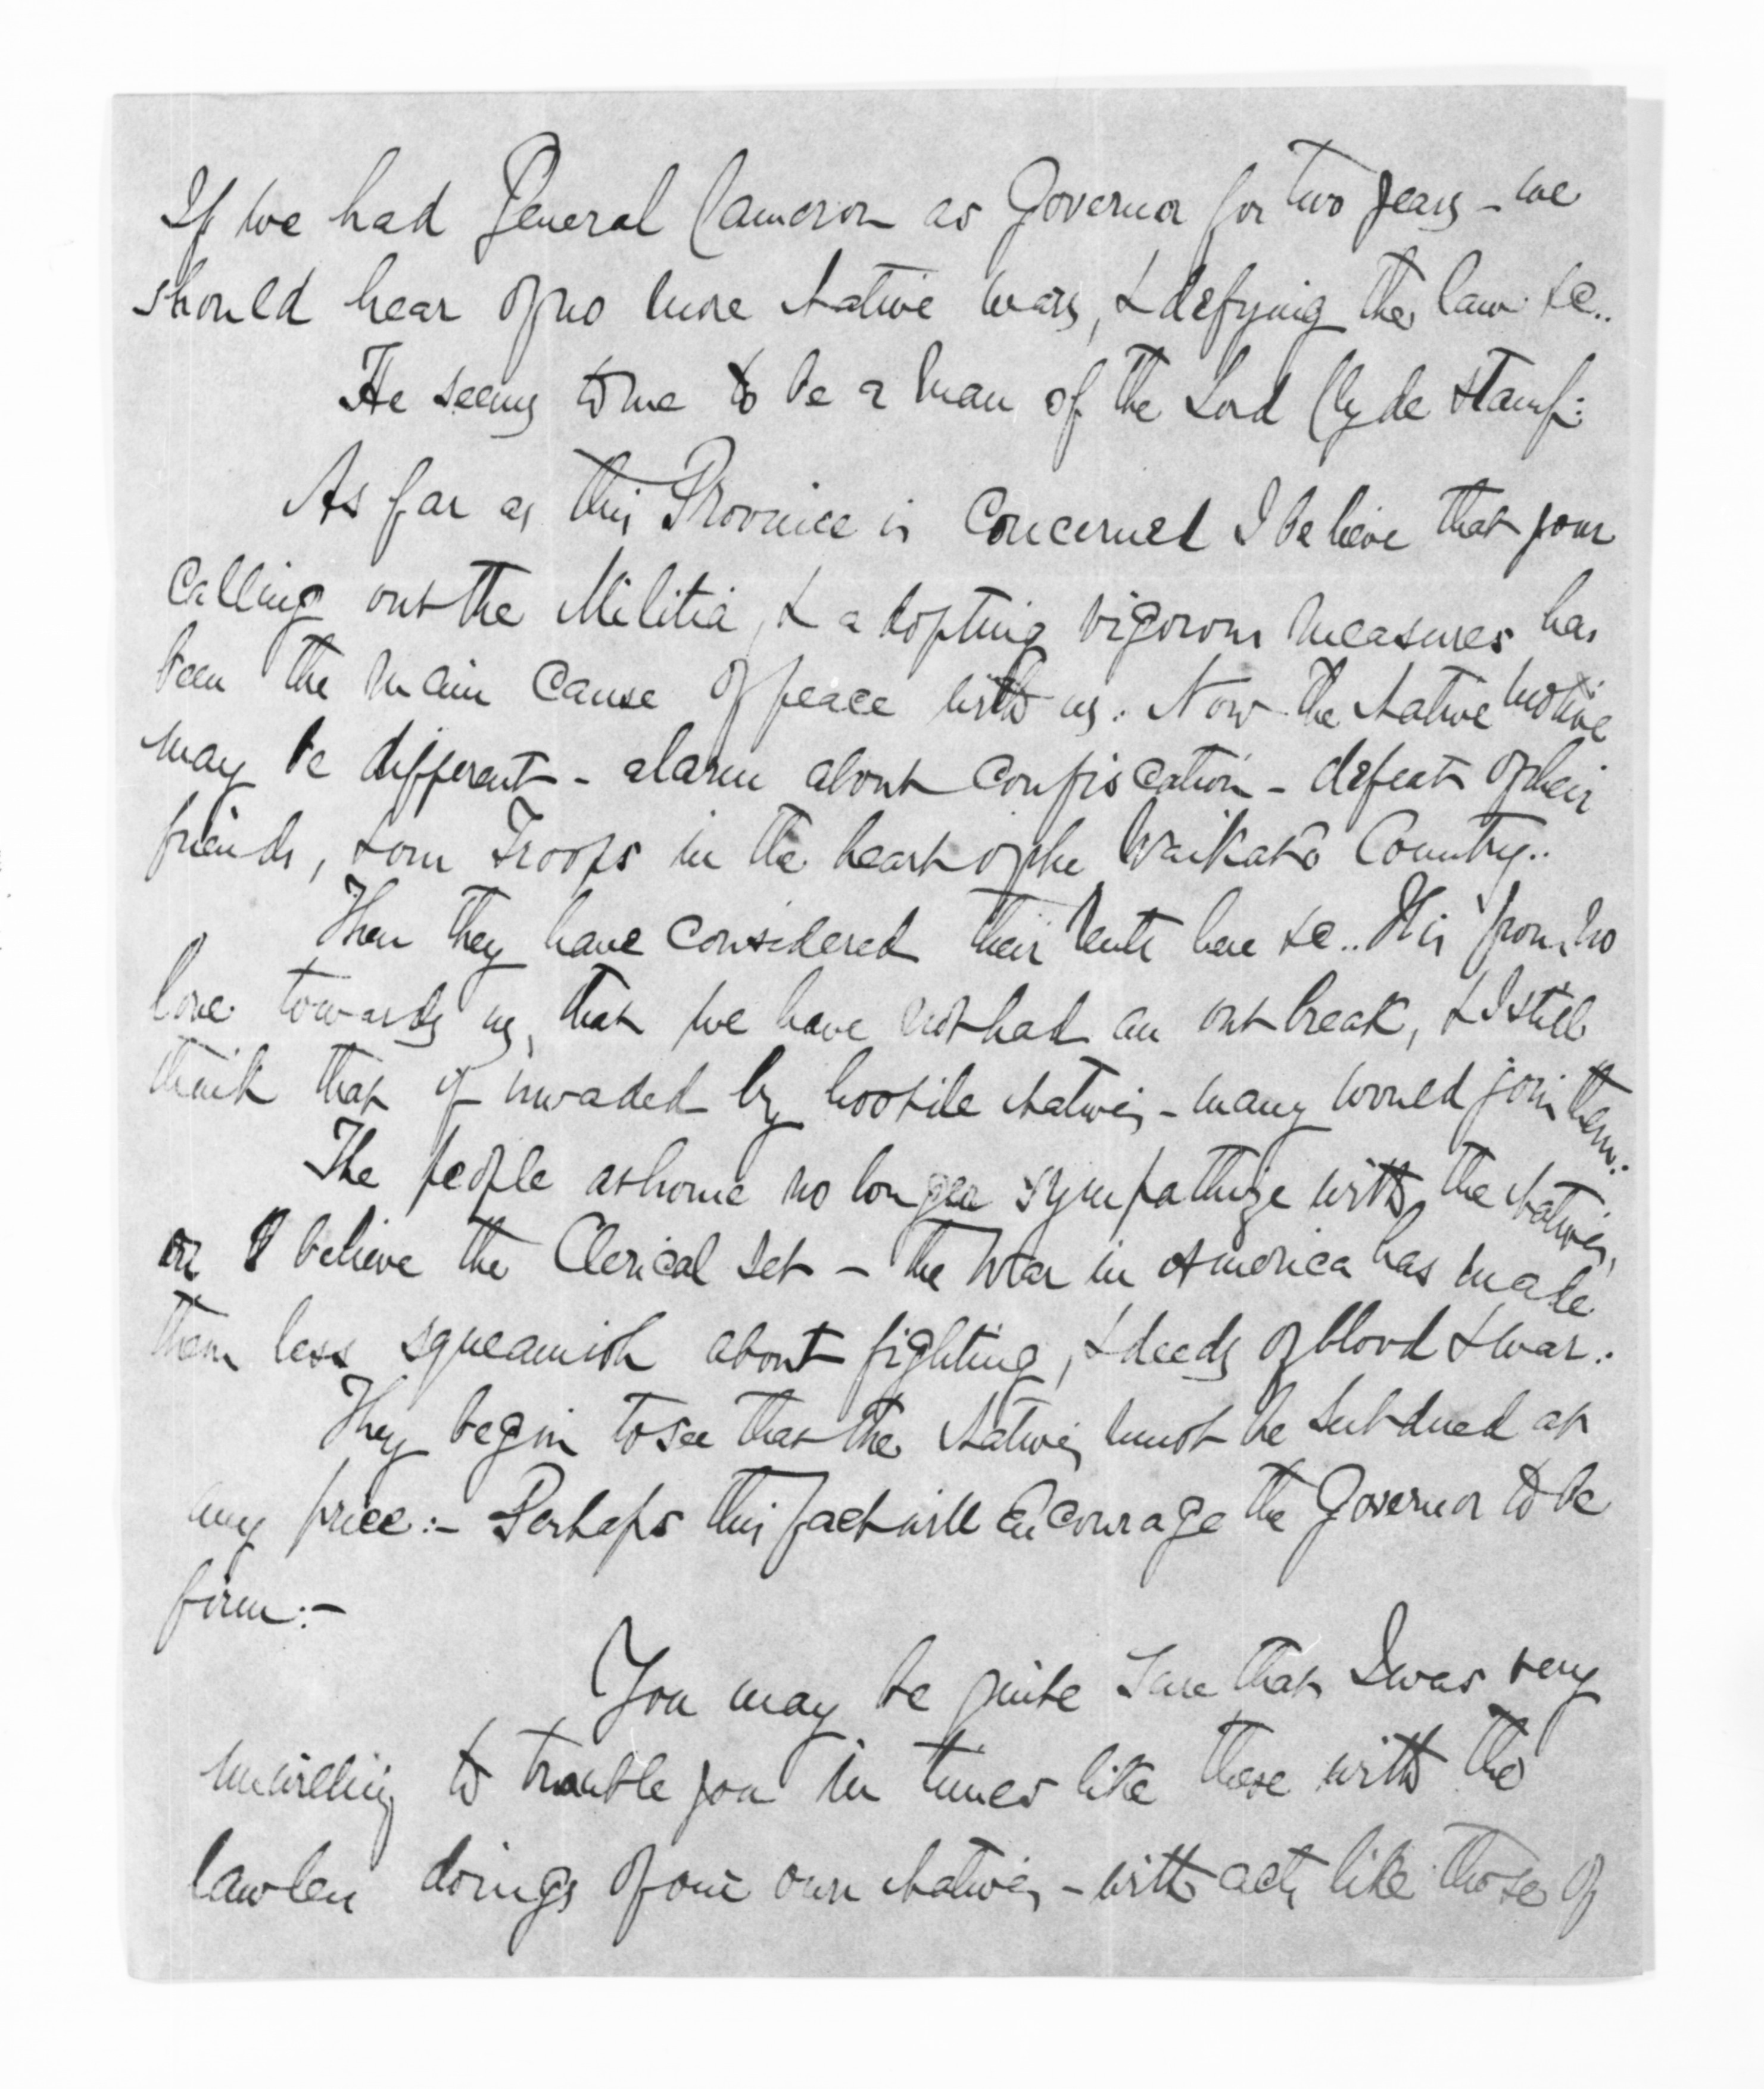 If we had General Cameron as Governor for two years - we
should hear of no more Native wars, & defying the law &c..
He seems to me to be a man of the Lord Clyde stamp:
As far as this Province is concerned I believe that your
calling out the Militia, & adopting vigorous measures has
been the main cause of peace with us. Now the Native motive
may be different - alarm about confiscation - defeat of their
friends, & our Troops in the heart of the Waikato Country..
Then they have considered their rents here &c.. It is from no
love towards us, that we have not had an outbreak, & I still
think that if invaded by hostile Natives - many would join them:
The people at home no longer sympathize with the Natives,
or I believe the Clerical set - the War in America has made
them less squeamish about fighting, & deeds of blood & war:
They begin to see that the Natives must be subdued at
any price:- Perhaps this fact will encourage the Governor to be
firm:-
You may be quite sure that I was very
unwilling to trouble you in times like these with the
lawless doings of our own Natives - with acts like those of